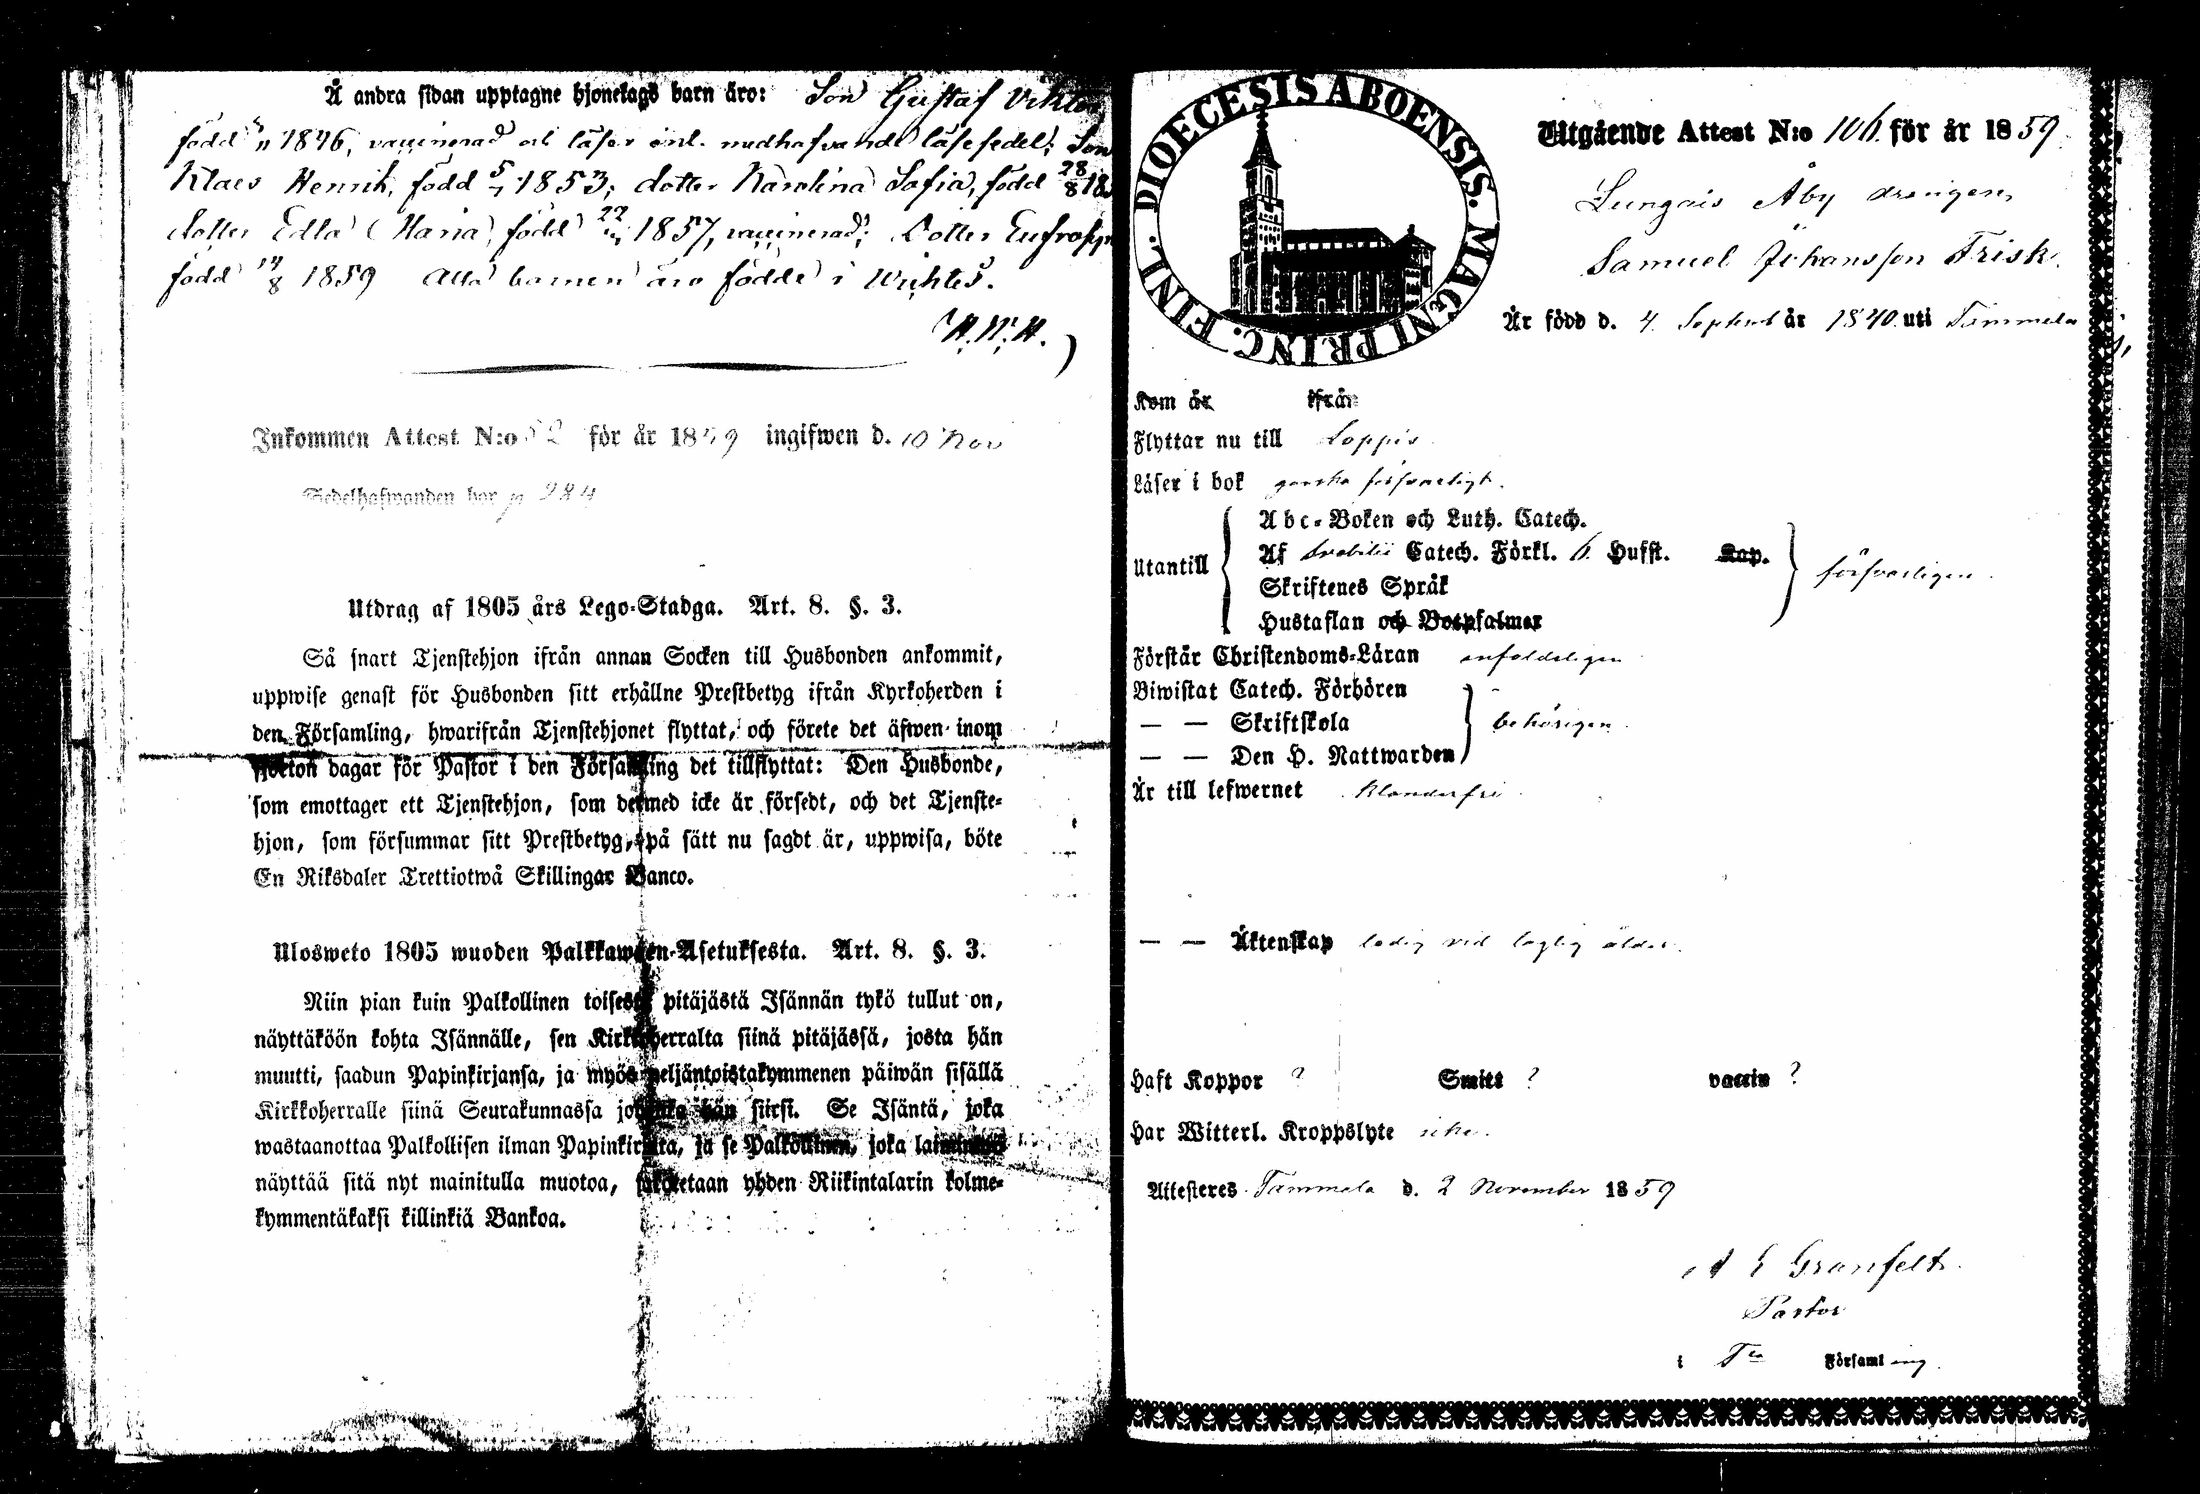 Å andra sidan upptagne hjonelags barn äro: Son Gustaf Viktor
född 1846, vaccinerad och läser enl. medhafvande läsesedel; Son
Klaes Henrik, född 5/7 1853; dotter Karolina Sofia, född 28/8 18
dotter Edla Maria, född 22 1857, vaccinerad; Dotter Eufrosyn
född 14/8 1859 Alla barnen äro födde i Wichtis.
Inkommen Attest N:o 52 för år 1859 ingifwen d. 10 Nov
Sedelhafwanden bor p 284
Utdrag af 1805 års Lego-Stadga. Art. 8. §. 3.
Så snart Tjenstehjon ifrån annan Socken till Husbonden ankommit,
uppwise genast för Husbonden sitt erhållne Prestbetyg ifrån Kyrkoherden i
den Församling, hwarifrån Tjenstehjonet flyttat, och förete det äfwen inom
fjorton dagar för Pastor i den Församling det tillflyttat: Den Husbonde,
som emottager ett Tjenstehjon, som dermed icke är försedt, och det Tjenste-
hjon, som försummar sitt Prestbetyg, på sätt nu sagdt är, uppwisa, böte
En Riksdaler Trettiotwå Skillingar Banco.
Ulosweto 1805 wuoden Palkkawäen-Asetuksesta. Art. 8. §. 3.
Niin pian kuin Palkollinen toisesta pitäjästä Isännän tykö tullut on,
näyttäköön kohta Isännälle, sen Kirkkoherralta siinä pitäjässä, josta hän
muutti, saadun Papinkirjansa, ja myös neljäntoistakymmenen päiwän sisällä
Kirkkoherralle siinä Seurakunnassa johonka hän siirsi. Se Isäntä, joka
wastaanottaa Palkollisen ilman Papinkirjata, ja se Palkollinen, joka laiminlyö
näyttää sitä nyt mainitulla muotoa, sakotetaan yhden Riikintalarin kolme-
kymmentäkaksi killinkiä Bankoa.
DIOECESIS ABOENSIS. MAGNI PRINC. FINL.
Utgående Attest N:o 106 för år 1859
Åby drengen
Samuel Johansson Frisk.
Är född d. 4 Septemb år 1840 uti Tammela
Kom år ifrån
Flyttar nu till Loppis
Läser i bok ganska försvarligt.
Utantill
Abc-Boken och Luth. Catech.
Af Svebilii Catech. Förkl. 6 Hufst. Kap.
Skriftenes Språk
Hustaflan och Botpsalmer
försvarligen
Förstår Christendoms-Läran enfaldeligen
Biwistat Catech. Förhören
— — Skriftskola
— — Den H. Nattwarden
behörigen
Är till lefwernet klanderfri
— — Äktenskap ledig vid laglig ålder.
Haft Koppor ? Smitt ? vaccin ?
Har Witterl. Kroppslyte icke.
Attesteres Tammela d. 2 November 1859
A E Granfelt
Pastor
i Församling